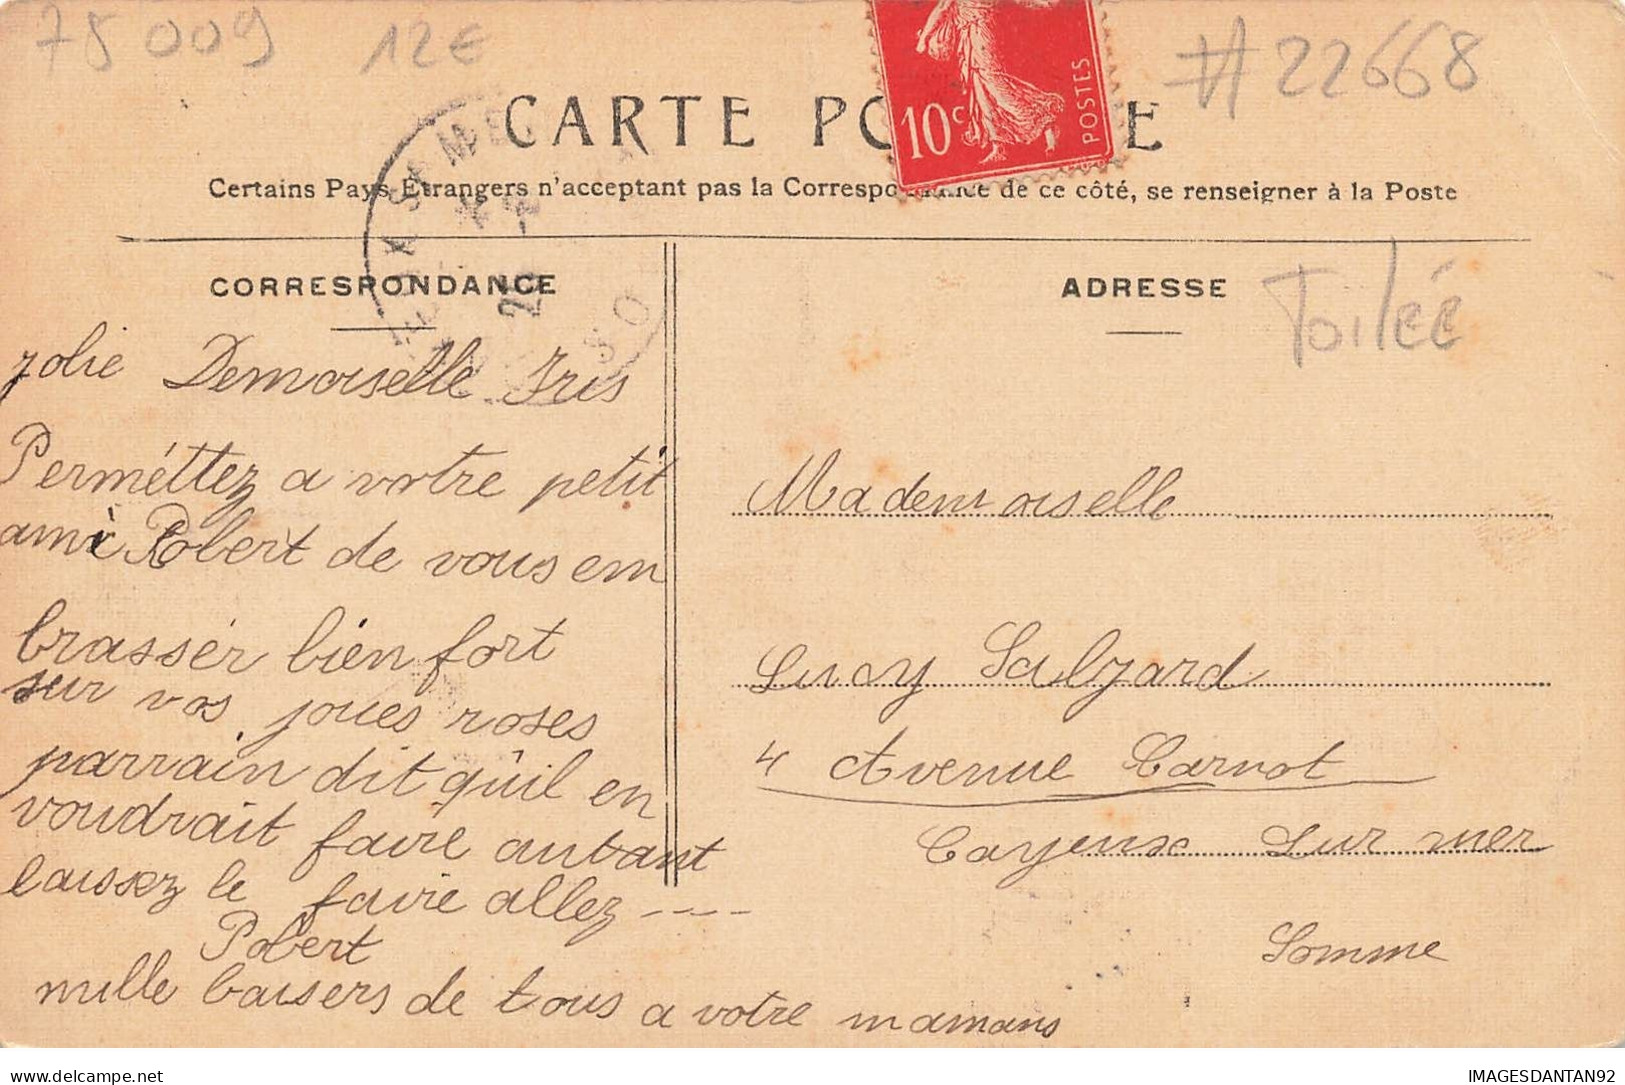 75009 12€ #22668
10c POSTES
CARTE PO E
Certains Pays Etrangers n'acceptant pas la Correspondance de ce côté, se renseigner à la Poste
CORRESPONDANCE
jolie Demoiselle Iris
Perméttez a votre petit
ami Robert de vous em
brasser bien fort
sur vos joues roses
parrain dit qûil en
voudrait faire autant
laissez le faire allez ----
Robert
mille baisers de tous a votre mamans
ADRESSE
Toilée
Mademoiselle
Lucy Salzard
4 Avenue Carnot
Cayeux Sur mer
Somme
delcampe.net
IMAGESDANTAN92